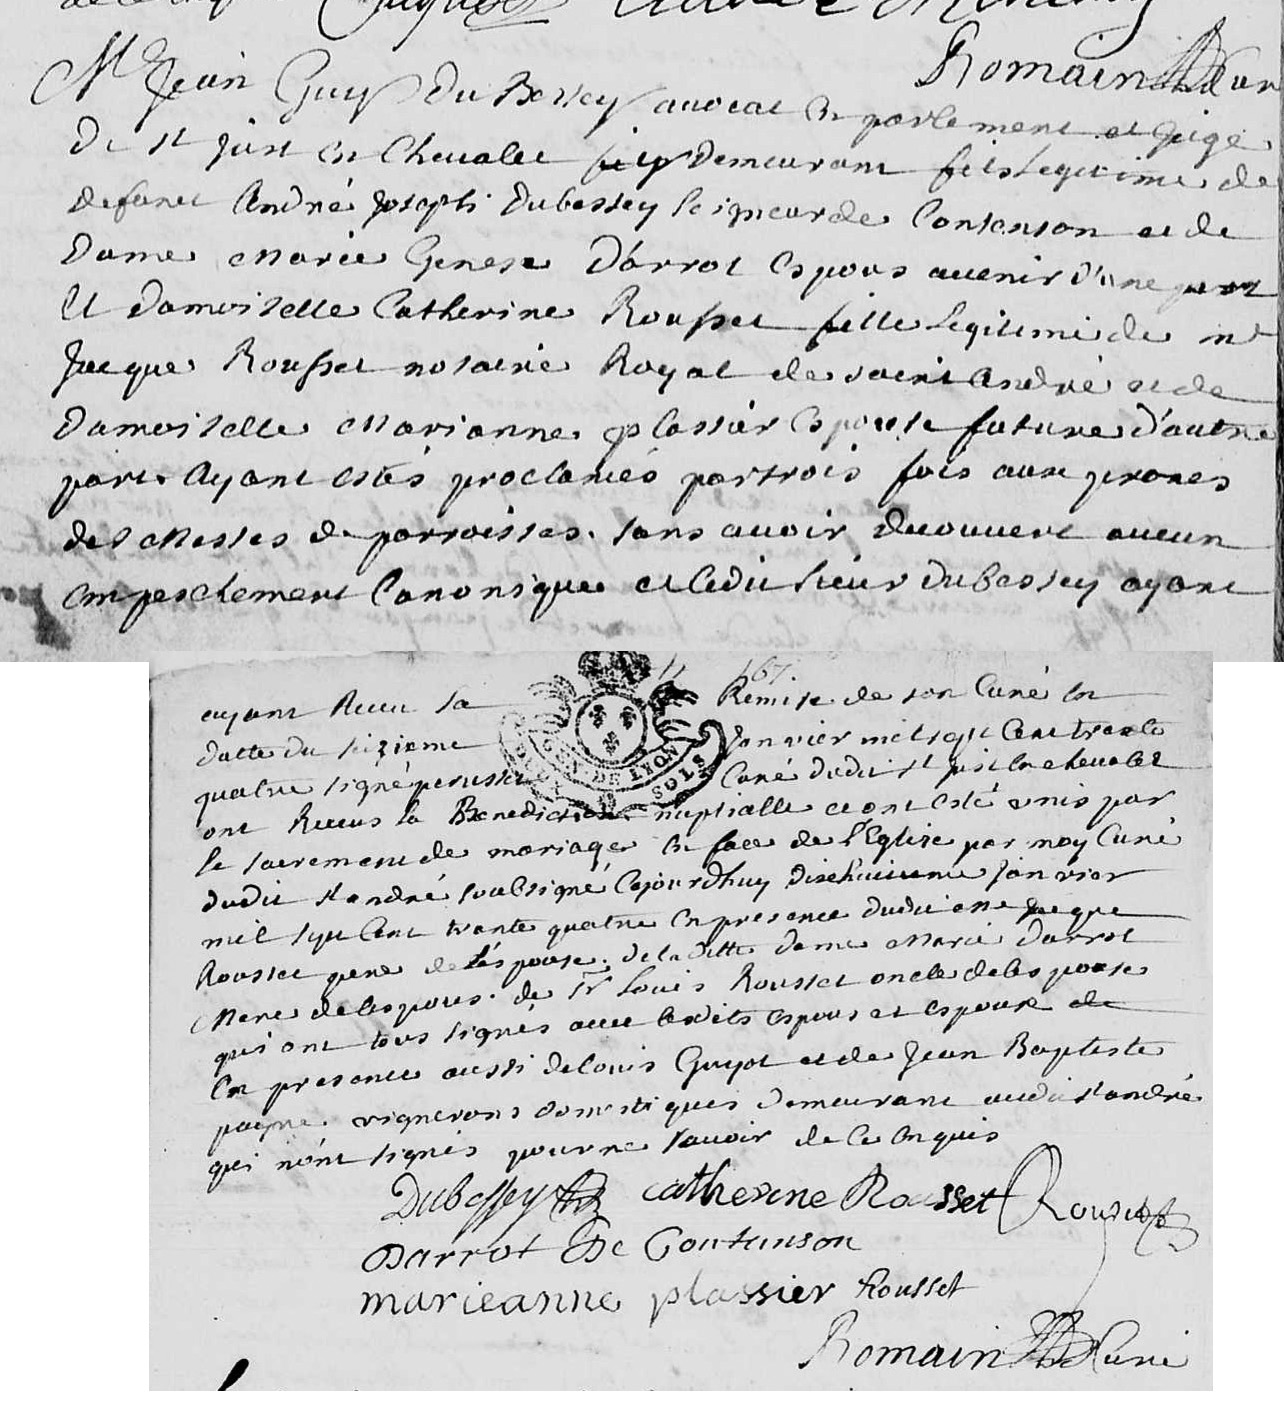 Romain Curé
Mr Jean Guy Du Bessey avocat en parlement et juge
De st Just en Chevalet y Demeurant fils legitime de
defunct André Joseph Dubessey seigneur de Contenson et de
Dame Marie Genese Darrot espous avenir d'une part
Et Damoiselle Catherine Rousset fille legitime de mr
Jacque Rousset notaire Royal de saint André et de
Damoiselle Marianne plassier espouse future d'autre
part. Ayant estés proclamés partrois fois aux prones
des Messes de parroisses. sans avoir decouvert aucun
empeschement Canonique et ledit sieur dubessey ayant
ayant Receu la Remise de son Curé en
datte du seizieme Janvier mil sept Cent trente
quatre signé perusset Curé dudit st just en chevalet
GEN DE LYON
DEUX SOLS
ont Receus la Benediction nuptialle et ont esté unis par
le sacrement de mariage en face de l'Eglise par moy Curé
dudit st andré soubsigné Cejourdhuy dixhuitieme Janvier
mil sept Cent trante quatre en presence dudit me Jacque
Rousset pere de l'éspouse. de la ditte dame Marie Darrot
Mere de lespous. de sr Louis Rousset oncle de lespouse
qui ont tous signés avec lesdits espous et espouse de
En presence aussi de Louis Guyot et de Jean Baptiste
payne vignerons domestiques demeurant audit st andré
qui n'ont signés pour ne scavoir de ce enquis
Dubessey catherine Rousset Rousset
Darrot De Contanson
marieanne plassier Rousset
Romain Curé